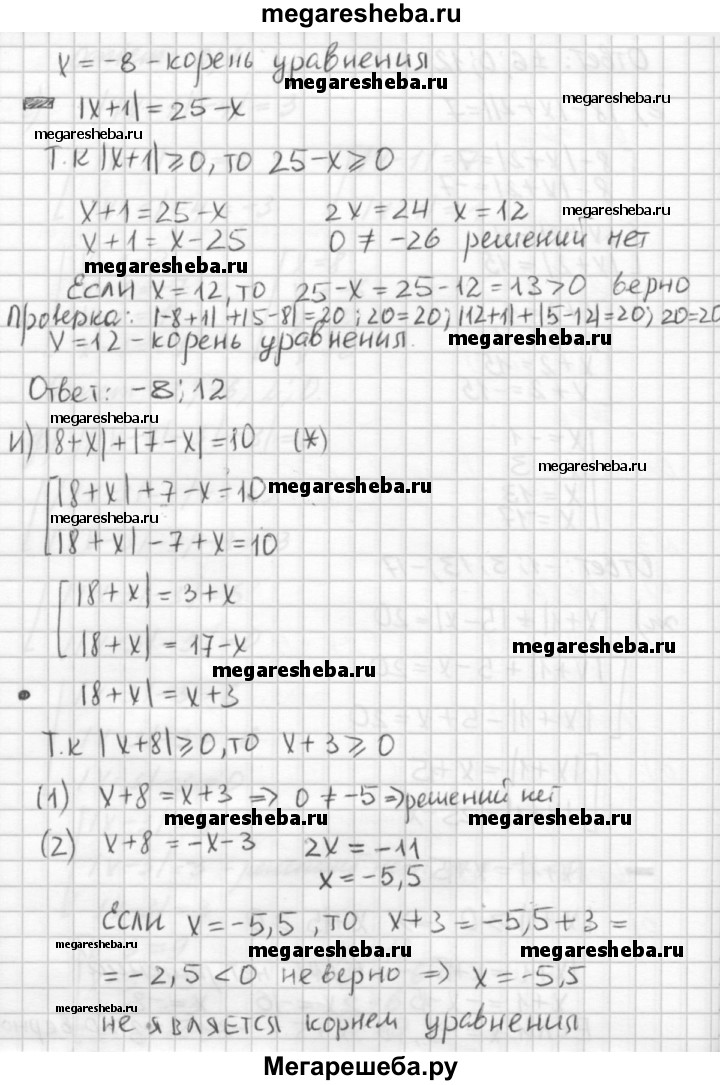 megaresheba.ru
x = -8 - корень уравнения
megaresheba.ru
megaresheba.ru
|x+1| = 25-x
megaresheba.ru
Т.к |x+1| ⩾ 0, то 25-x ⩾ 0
x+1 = 25-x 2x = 24 x = 12 megaresheba.ru
x+1 = x-25 0 ≠ -26 решений нет
megaresheba.ru
Если x = 12, то 25-x = 25-12 = 13 > 0 верно
Проверка: |-8+1| + |5-8| = 20; 20=20; |12+1| + |5-12| = 20; 20=20
x = 12 - корень уравнения. megaresheba.ru
Ответ: -8; 12
megaresheba.ru
и) |8+x| + |7-x| = 10 (*)
megaresheba.ru
[|8+x| + 7-x = 10 megaresheba.ru
megaresheba.ru
[|8+x| - 7+x = 10
[|8+x| = 3+x
[|8+x| = 17-x megaresheba.ru
megaresheba.ru
• |8+x| = x+3
Т.к |x+8| ⩾ 0, то x+3 ⩾ 0
(1) x+8 = x+3 => 0 ≠ -5 => решений нет
megaresheba.ru megaresheba.ru
(2) x+8 = -x-3 2x = -11
x = -5,5
Если x = -5,5, то x+3 = -5,5+3 =
megaresheba.ru megaresheba.ru megaresheba.ru
= -2,5 < 0 не верно => x = -5,5
megaresheba.ru
не является корнем уравнения
Мегарешеба.ру